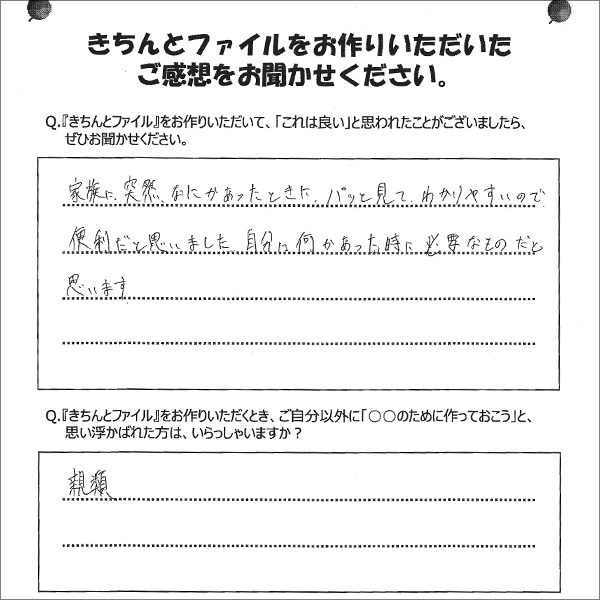 きちんとファイルをお作りいただいた
ご感想をお聞かせください。
Q.『きちんとファイル』をお作りいただいて、「これは良い」と思われたことがございましたら、
ぜひお聞かせください。
家族に、突然、なにかあったときに、パッと見て、わかりやすいので
便利だと思いました。自分に何かあった時に必要なものだと
思います
Q.『きちんとファイル』をお作りいただくとき、ご自分以外に「○○のために作っておこう」と、
思い浮かばれた方は、いらっしゃいますか？
親類